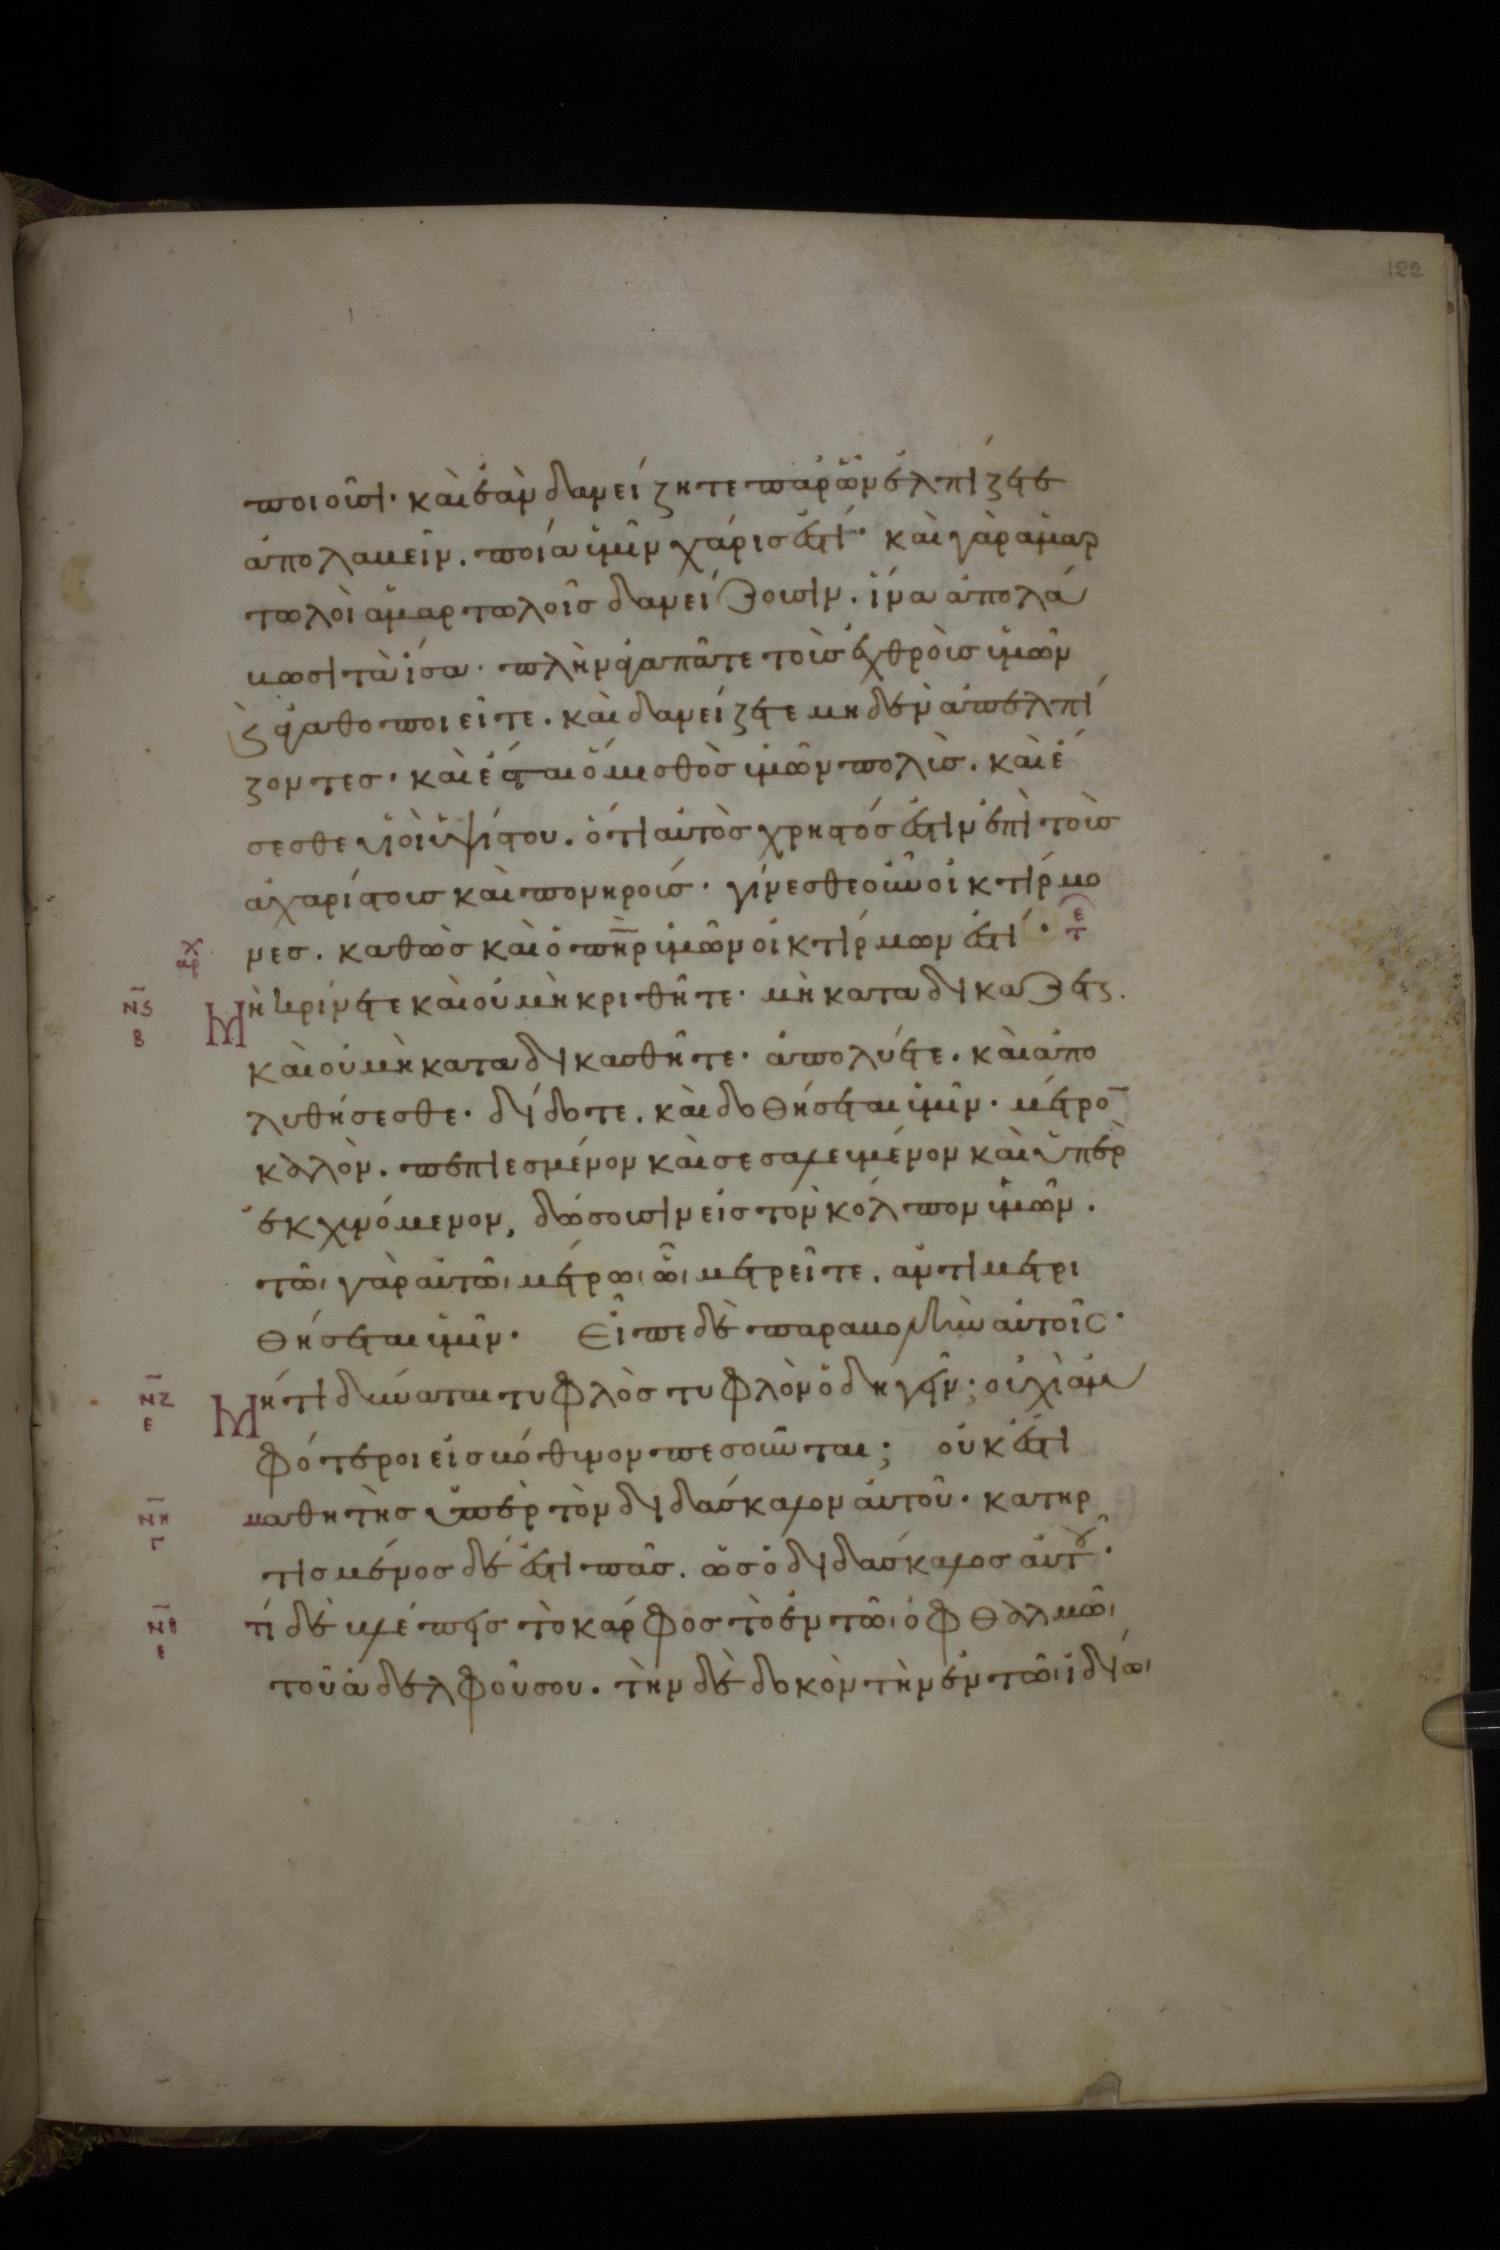 122
ποιοῦσι· καὶ ἐὰν δανείζητε παρ' ὧν ἐλπίζετε
ἀπολαβεῖν. ποία ὑμῖν χάρις ἐστί· καὶ γὰρ ἁμαρ
τωλοὶ ἁμαρτωλοῖς δανείζουσιν. ἵνα ἀπολά
βωσι τὰ ἴσα· πλὴν ἀγαπᾶτε τοὺς ἐχθροὺς ὑμῶν
ϗ ἀγαθοποιεῖτε. καὶ δανείζετε μηδὲν ἀπελπί
ζοντες· καὶ ἔσται ὁ μισθὸς ὑμῶν πολύς. καὶ ἔ
σεσθε υἱοὶ ὑψίστου. ὅτι αὐτὸς χρηστός ἐστιν ἐπὶ τοὺς
ἀχαρίστους καὶ πονηρούς· γίνεσθε οὖν οἰκτίρμο
νες. καθὼς καὶ ὁ πη̅ρ ὑμῶν οἰκτίρμων ἐστί·
Μὴ κρίνετε καὶ οὐ μὴ κριθῆτε· μὴ καταδικάζετε.
καὶ οὐ μὴ καταδικασθῆτε· ἀπολύετε. καὶ ἀπο
λυθήσεσθε· δίδοτε. καὶ δοθήσεται ὑμῖν· μέτρο̅
καλὸν. πεπιεσμένον καὶ σεσαλευμένον καὶ ὑπερ
εκχυνόμενον, δώσουσιν εἰς τὸν κόλπον ὑμῶν.
τῶι γὰρ αὐτῶι μέτρωι ὧι μετρεῖτε. ἀντιμετρι
θήσεται ὑμῖν· Εἶπε δὲ παραβολὴν αὐτοῖς·
Μήτι δύναται τυφλὸς τυφλὸν ὁδηγεῖν; οὐχὶ ἀμ
φότεροι εἰς βόθυνον πεσοῦνται; οὐκ ἔστι
μαθητὴς ὑπὲρ τὸν διδάσκαλον αὐτοῦ· κατηρ
τισμένος δέ ἐστι πᾶς. ὡς ὁ διδάσκαλος αὐτοῦ·
τί δὲ βλέπεις τὸ κάρφος τὸ ἐν τῶι ὀφθαλμῶι
τοῦ ἀδελφοῦ σου. τὴν δὲ δοκὸν τὴν ἐν τῶι ἰδίωι